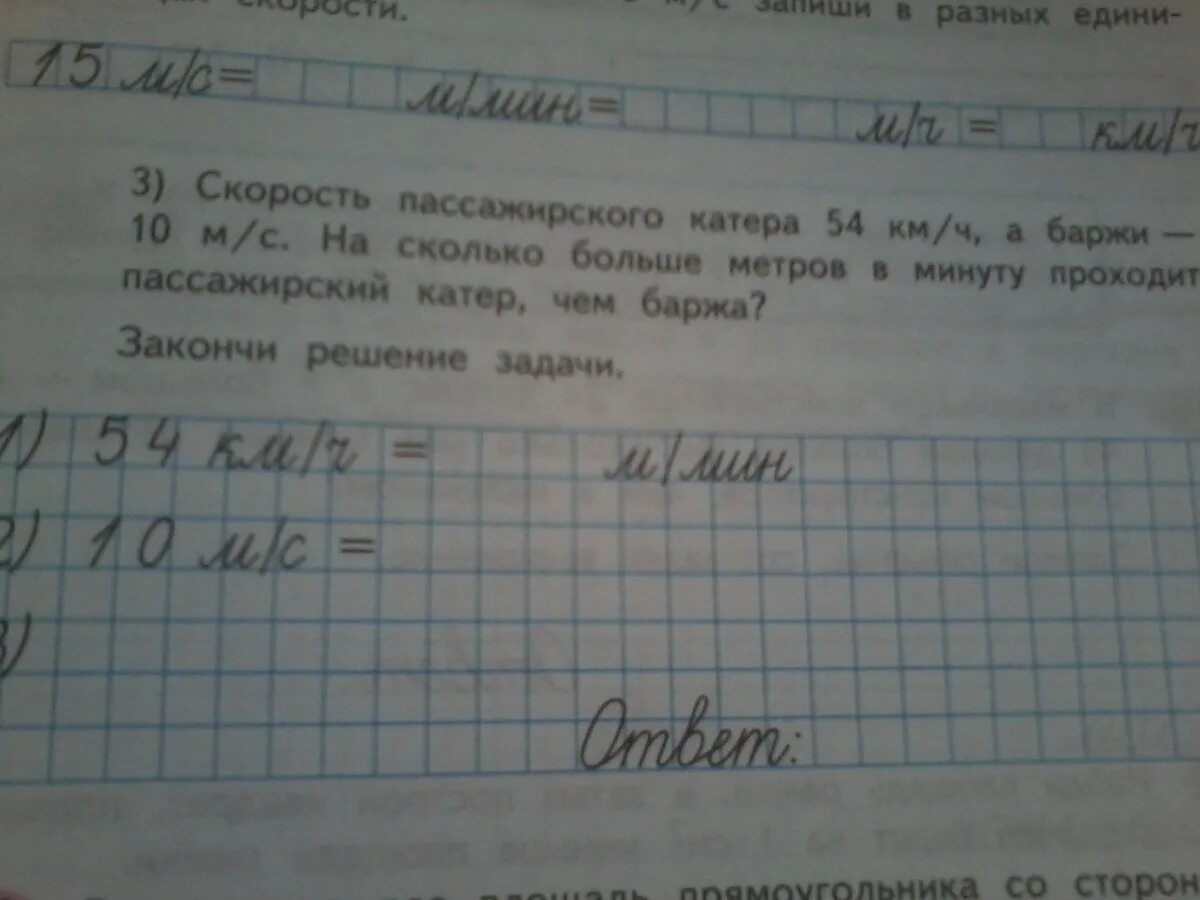 скорости. м/с запиши в разных едини-
15 м/с= м/мин= м/ч = км/ч
3) Скорость пассажирского катера 54 км/ч, а баржи —
10 м/с. На сколько больше метров в минуту проходит
пассажирский катер, чем баржа?
Закончи решение задачи.
1) 54 км/ч = м/мин
2) 10 м/с =
3)
Ответ:
площадь прямоугольника со сторон